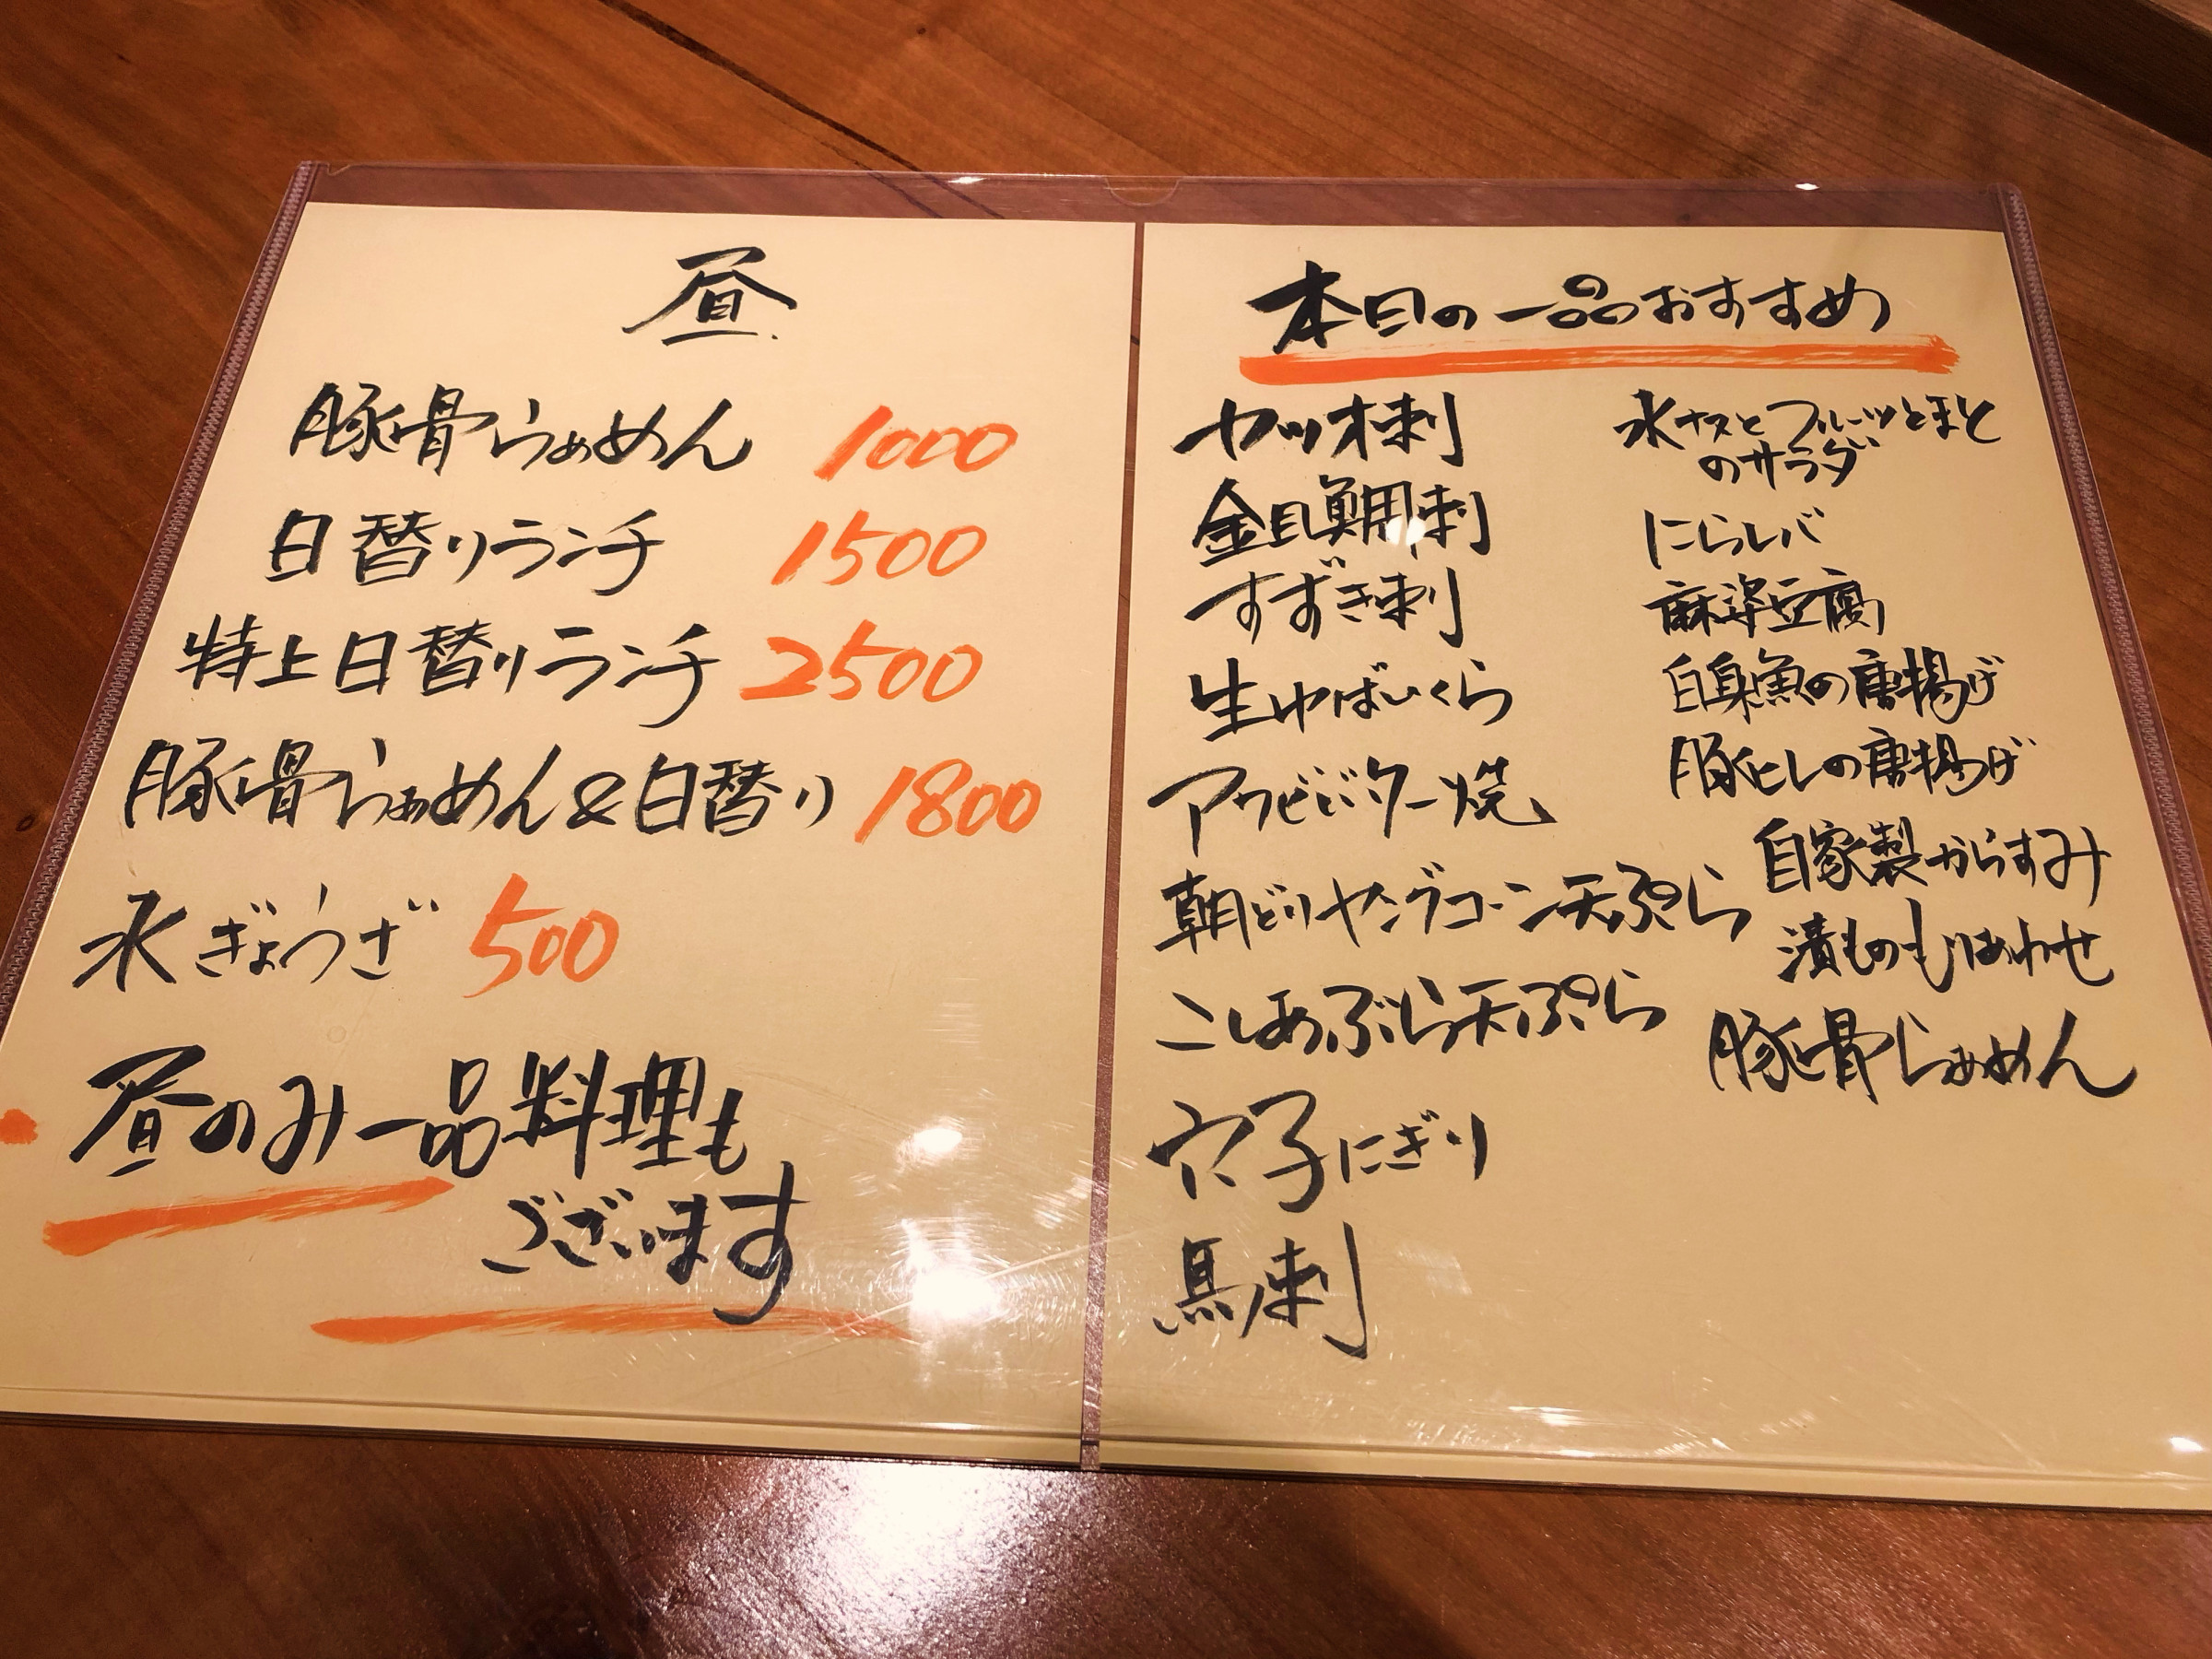 昼
豚骨らぁめん 1000
日替りランチ 1500
特上日替りランチ 2500
豚骨らぁめん&日替り 1800
水ぎょうざ 500
昼のみ一品料理も
ございます
本日の一品おすすめ
カツオ刺
金目鯛刺
すずき刺
生ゆばいくら
アワビバター焼
朝どりヤングコーン天ぷら
こしあぶら天ぷら
穴子にぎり
馬刺
水ナスとフルーツとまと
のサラダ
にらレバ
麻婆豆腐
白身魚の唐揚げ
豚ヒレの唐揚げ
自家製からすみ
漬ものもりあわせ
豚骨らぁめん